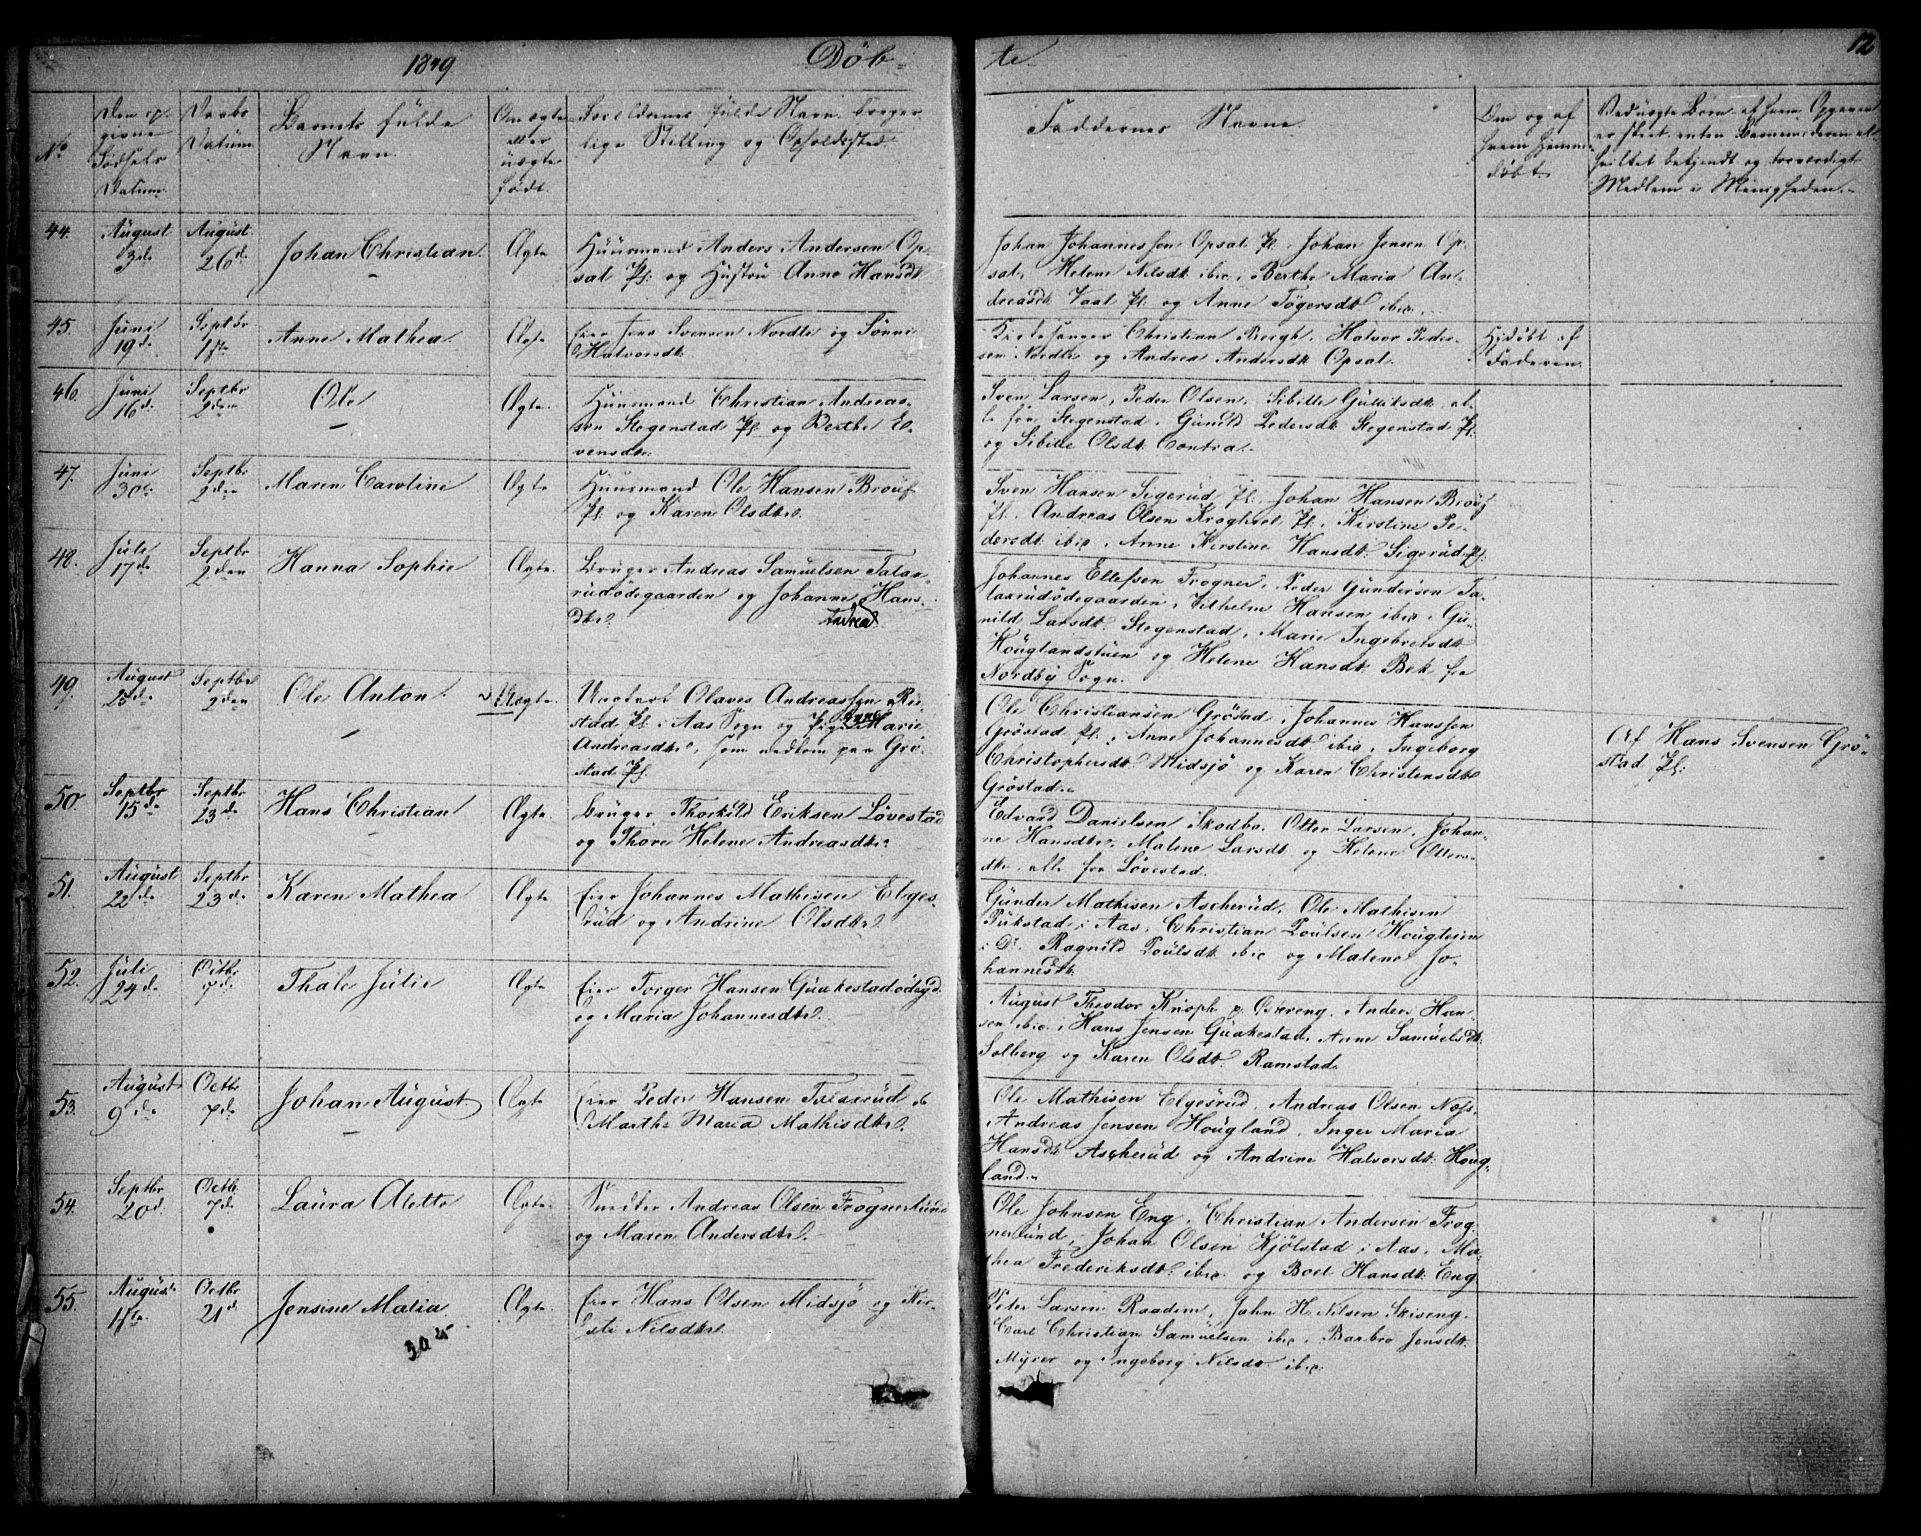 1849 Döb- te. 12
No
Den op-
givne
Födsels
Datum.
Daabs
Datum
Barnets fulde
Navn.
Om ægte
eller
uægte
födt.
Foreldrenes fulde Navn, borger-
lige Stilling og Opholdssted
Faddernes Navne.
Om og af
hvem hjemme-
döbt.
Ved uægte Börn af hvem Opgaven
er skeet, enten Barnemoderen el.
hvilket bekjendt og troværdigt
Medlem i Menigheden.
44. August 3de August 26de Johan Christian. Ægte
Huusmand Anders Andersen Op-
sat Pl: og Hustru Anne Hansdt.
Johan Johannessen Opsat Pl. Johan Jensen Op-
sat, Helene Nilsdt. ibid, Berthe Maria An-
dreasdt. Vaal Pl: og Anne Tögersdt. ibid.
45. Juni 19de Septbr 1ste Anne Mathea. Ægte
Eier Jens Svensen Nordli og Sönni
Halvorsdt.
Kirkesanger Christian Bergh. Halvor Peder-
sen Nordli og Andrea Andersdt Opsat.
Hjdöbt af
Faderen.
46. Juni 16de Septbr 2den Ole Ægte.
Huusmand Christian Andreas-
sen Stegenstad Pl. og Berthe E-
vensdtr.
Sven Larsen, Peder Olsen, Sibille Gulliksdt. al-
le fra Stegenstad. Gunild Pedersdt. Stegenstad Pl:
og Sibille Olsdt. Contra.
47. Juni 30te Septbr 2den Maren Caroline Ægte
Huusmand Ole Hansen
Pl. og Karen Olsdtr.
Sven Hansen Sigerud Pl., Johan Hansen
Pl. Andreas Olsen Pl. Kirstine Pe-
dersdt. ibid, Anne Kirstine Hansdt. Sigerud Pl.
48. Juli 17de Septbr 2den Hanna Sophie Ægte.
Bruger Andreas Samuelsen Talas-
rudödegaarden og Johanne Hans-
dtr. Andrea
Johannes Ellefsen Frogner, Peder Gundersen Ta-
lasrudödegaarden, Vilhelm Hansen ibid, Gu-
nild Larsdt. Stegenstad, Marie Ingebretsdt
Houglandstuen og Helene Hansdt. Bek fra
Nordby Sogn.
49. August 25de Septbr 2den Ole Anton. Uægte.
Ungkarl Olaves Andreassen Rii-
stad Pl. i Aas Sogn og Pige Anne Marie
Andreasdtr., som nedkom paa Grö-
stad Pl.
Ole Christiansen Gröstad, Johannes Hanssen
Gröstad Pl., Anne Johannesdt. ibid, Ingeborg
Christophersdt. Midsjö og Karen Christensdt
Gröstad.
Af Hans Svensen Grö-
stad Pl:
50. Septbr 15de Septbr 23de Hans Christian Ægte.
Bruger Thorkild Eriksen Lövestad
og Thore Helene Andreasdtr.
Edvard Danielsen Skodbo. Otter Larsen, Johan-
ne Hansdtr, Malene Larsdt. og Helene Otters-
dtr. alle fra Lövestad.
51. August 22de Septbr 23de Karen Mathea Ægte
Eier Johannes Mathisen Elges-
rud og Andrine Olsdtr.
Gunder Mathisen Ascherud, Ole Mathisen
Pukstad i Aas, Christian Poulsen Hougteien
i Do. Ragnild Poulsdt. ibid og Malene Jo-
hannesdt.
52. Juli 24de Octbr 7de Thale Julie Ægte.
Eier Torger Hansen Guakestadödegd.
og Maria Johannesdtr.
August Theodor Knoph p. Östereng. Anders Han-
sen ibid, Hans Jensen Guakestad, Anne Samuelsdt.
Solberg og Karen Olsdt. Ramstad.
53. August 9de Octbr 7de Johan August Ægte
Eier Peder Hansen og
Marthe Maria Mathisdtr.
Ole Mathisen Elgesrud, Andreas Olsen Næss.
Andreas Jensen Hougland, Inger Maria
Hansdt Ascherud og Andrine Halvorsdt. Houg-
land.
54. Septbr 20de Octbr 7de Laura Alette Ægte.
Andreas Olsen Frognerlund
og Maren Andersdtr.
Ole Johnsen Eng, Christian Andersen Frog-
nerlund, Johan Olsen Kjölstad i Aas, Ma-
thea Frederiksdt. ibid og Boel Hansdt. Eng
55. August 17de Octbr 21de Jensine Malia Ægte.
Eier Hans Olsen Midsjö og Kir-
sti Nilsdtr.
Peter Larsen Raadim, John H. Nilsen Skiseng.
Carl Christian Samuelsen ibid, Barbro Jensdt.
Myrer og Ingeborg Nilsdt ibid.